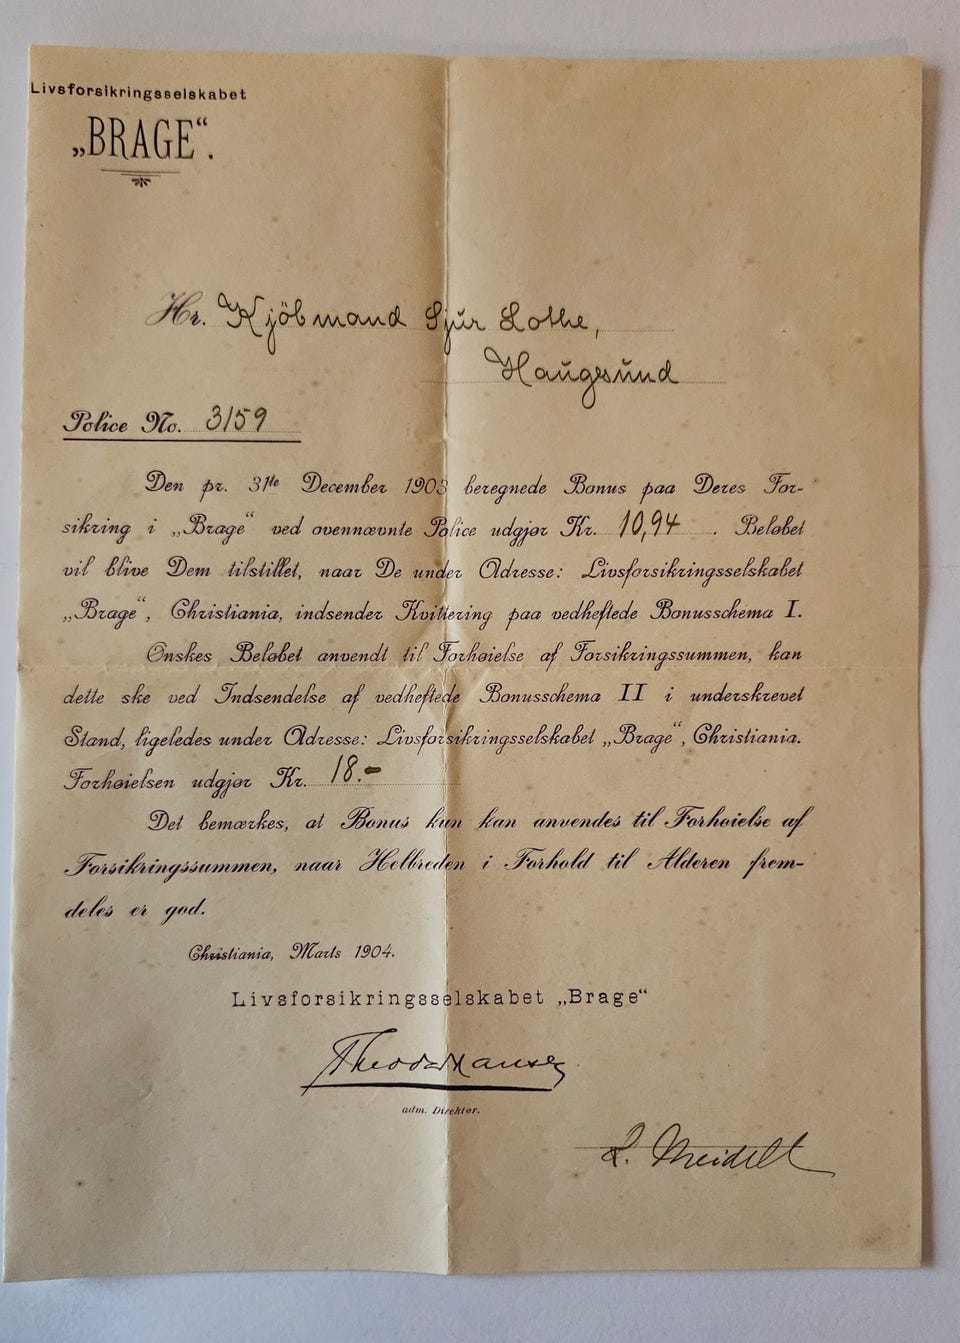 Livsforsikringsselskabet
„BRAGE“.
Hr. Kjöbmand Sjur Lothe,
Haugesund
Police No. 3159
Den pr. 31te December 1903 beregnede Bonus paa Deres For-
sikring i „Brage“ ved ovennævnte Police udgjør Kr. 10,94. Beløbet
vil blive Dem tilstillet, naar De under Adresse: Livsforsikringsselskabet
„Brage“, Christiania, indsender Kvittering paa vedheftede Bonusschema I.
Ønskes Beløbet anvendt til Forhøielse af Forsikringssummen, kan
dette ske ved Indsendelse af vedheftede Bonusschema II i underskrevet
Stand, ligeledes under Adresse: Livsforsikringsselskabet „Brage“, Christiania.
Forhøielsen udgjør Kr. 18.-
Det bemærkes, at Bonus kun kan anvendes til Forhøielse af
Forsikringssummen, naar Helbreden i Forhold til Alderen frem-
deles er god.
Christiania, Marts 1904.
Livsforsikringsselskabet „Brage“
Theodor Hansen
adm. Direktør.